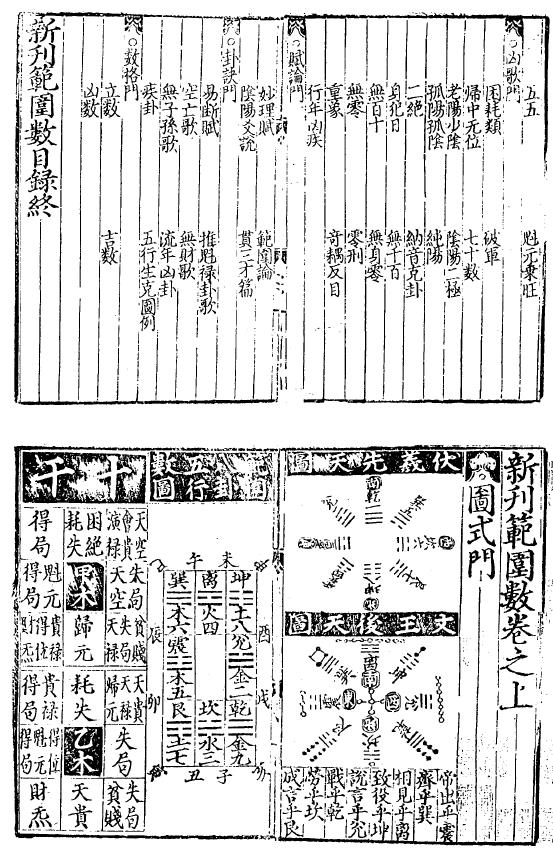 五五 魁元乘旺
凶歌門
困耗類 破軍
歸中无位 七十數
老陽少陰 陰陽二極
孤陽孤陰 純陽
二絕 納音克卦
身犯日 無千百
無百十 無身零
無零 零刑
重象 奇耦反目
行年凶疾
賦論門
妙理賦 範圍論
陰陽文說 貫三才篇
卦訣門
易斷賦 推魁祿卦歌
空亡歌 無財歌
無子孫歌 流年凶卦
疾卦 五行生克圖例
數格門
立數 吉數
凶數
新刊範圍數目錄終
新刊範圍數卷之上
圖式門
伏羲先天圖
文王後天圖
帝出乎震
齊乎巽
相見乎離
致役乎坤
說言乎兌
戰乎乾
勞乎坎
成言乎艮
五行
數圖
巳午未申
辰
卯
酉
戌
丑子亥
坤二土八
兌二金二
乾二金九
離火四
坎水三
巽木六
震木五
艮土七
十干
天空 會貴 演祿
困絕 耗失
得局
失局 天空
甲木
魁元 得局
貧賤 失局 天祿
歸元
貴祿 得位 財炁
天貴 天祿 歸元
耗失
貴祿 得局
失局
乙木
得位 魁元 得局
失局 貧賤
天貴
財炁